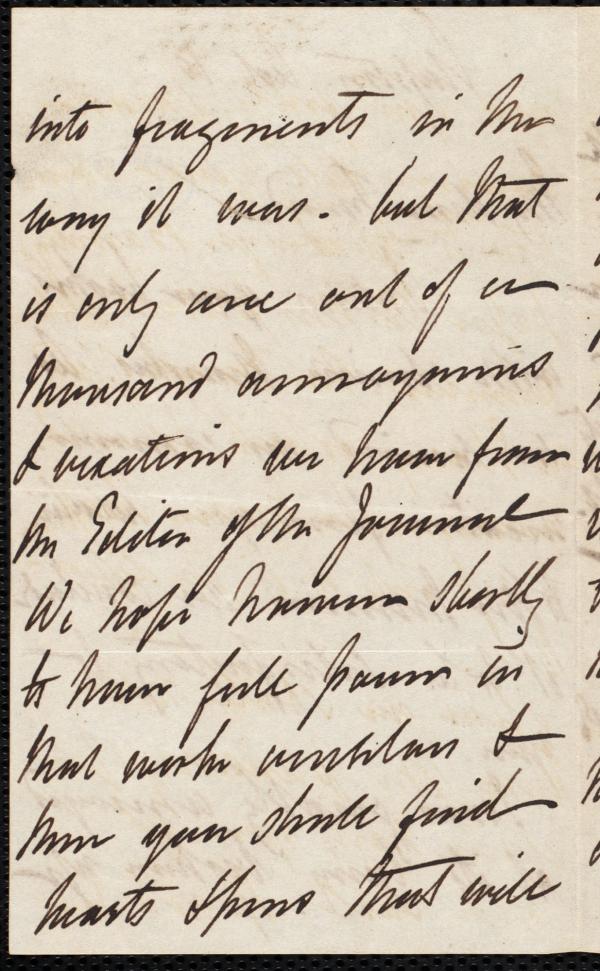 into fragments in the
way it was. but that
is only one out of a
thousand annoyances
& vexations we have from
the Editor of the Journal
We hope however shortly
to have full power in
that work ventilate &
then you shall find
hearts & pens that will